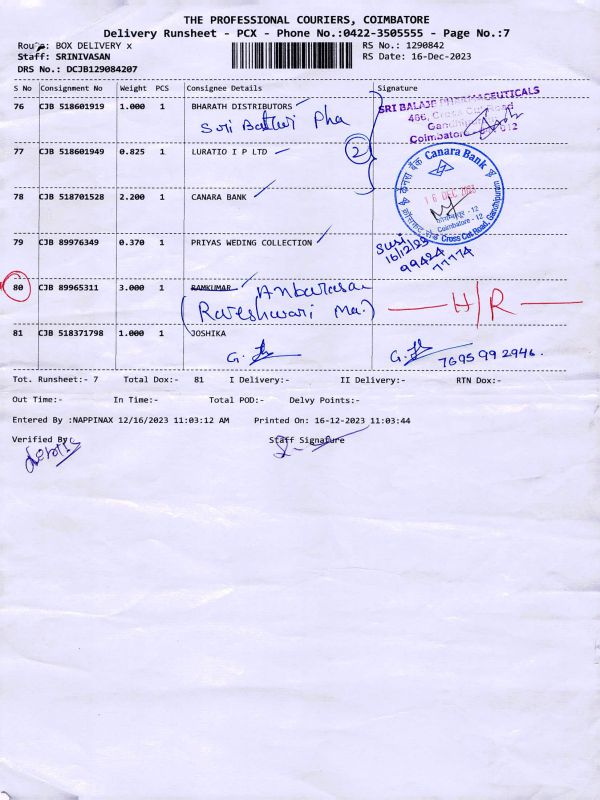 THE PROFESSIONAL COURIERS, COIMBATORE
Delivery Runsheet - PCX - Phone No.:0422-3505555 - Page No.:7
Route: BOX DELIVERY x
RS No.: 1290842
Staff: SRINIVASAN
RS Date: 16-Dec-2023
DRS No.: DCJB129084207
S No Consignment No Weight PCS Consignee Details Signature
76 CJB 518601919 1.000 1 BHARATH DISTRIBUTORS
SRI BALAJI PHARMACEUTICALS
466, Cross Cut Road
Coimbatore
77 CJB 518601949 0.825 1 LURATIO I P LTD
2
78 CJB 518701528 2.200 1 CANARA BANK
केनरा बैंक Canara Bank
16 DEC 2023
Coimbatore - 12
Cross Cut Road, Gandhipuram
79 CJB 89976349 0.370 1 PRIYAS WEDING COLLECTION
Susi
16/12/23
99424
77774
80 CJB 89965311 3.000 1 RAMKUMAR Anbarasan
H/R
81 CJB 518371798 1.000 1 JOSHIKA
7695 99 2946.
Tot. Runsheet:- 7 Total Dox:- 81 I Delivery:- II Delivery:- RTN Dox:-
Out Time:- In Time:- Total POD:- Delvy Points:-
Entered By :NAPPINAX 12/16/2023 11:03:12 AM Printed On: 16-12-2023 11:03:44
Verified By:
Staff Signature